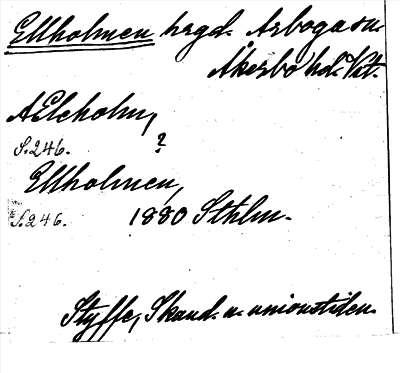 Ellholmen hrgd. Arboga sn.
Åkerbo hd. Vst.
AElcholm,
S. 246. ?
Ellholmen,
S. 246. 1880 Sthlm.
Styffe, Skand. u. unionstiden.